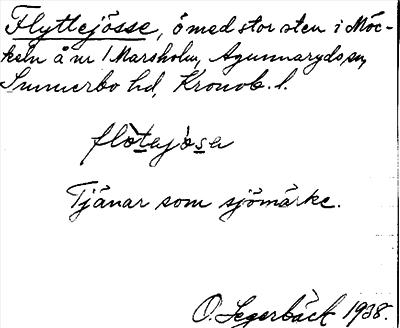 Flyttejösse, ö med stor sten i Möc-
keln å nr 1 Marsholm, Agunnaryds sn,
Sunnerbo hd, Kronob. l.
flòtajòsa
Tjänar som sjömärke.
O. Segerbäck 1938.